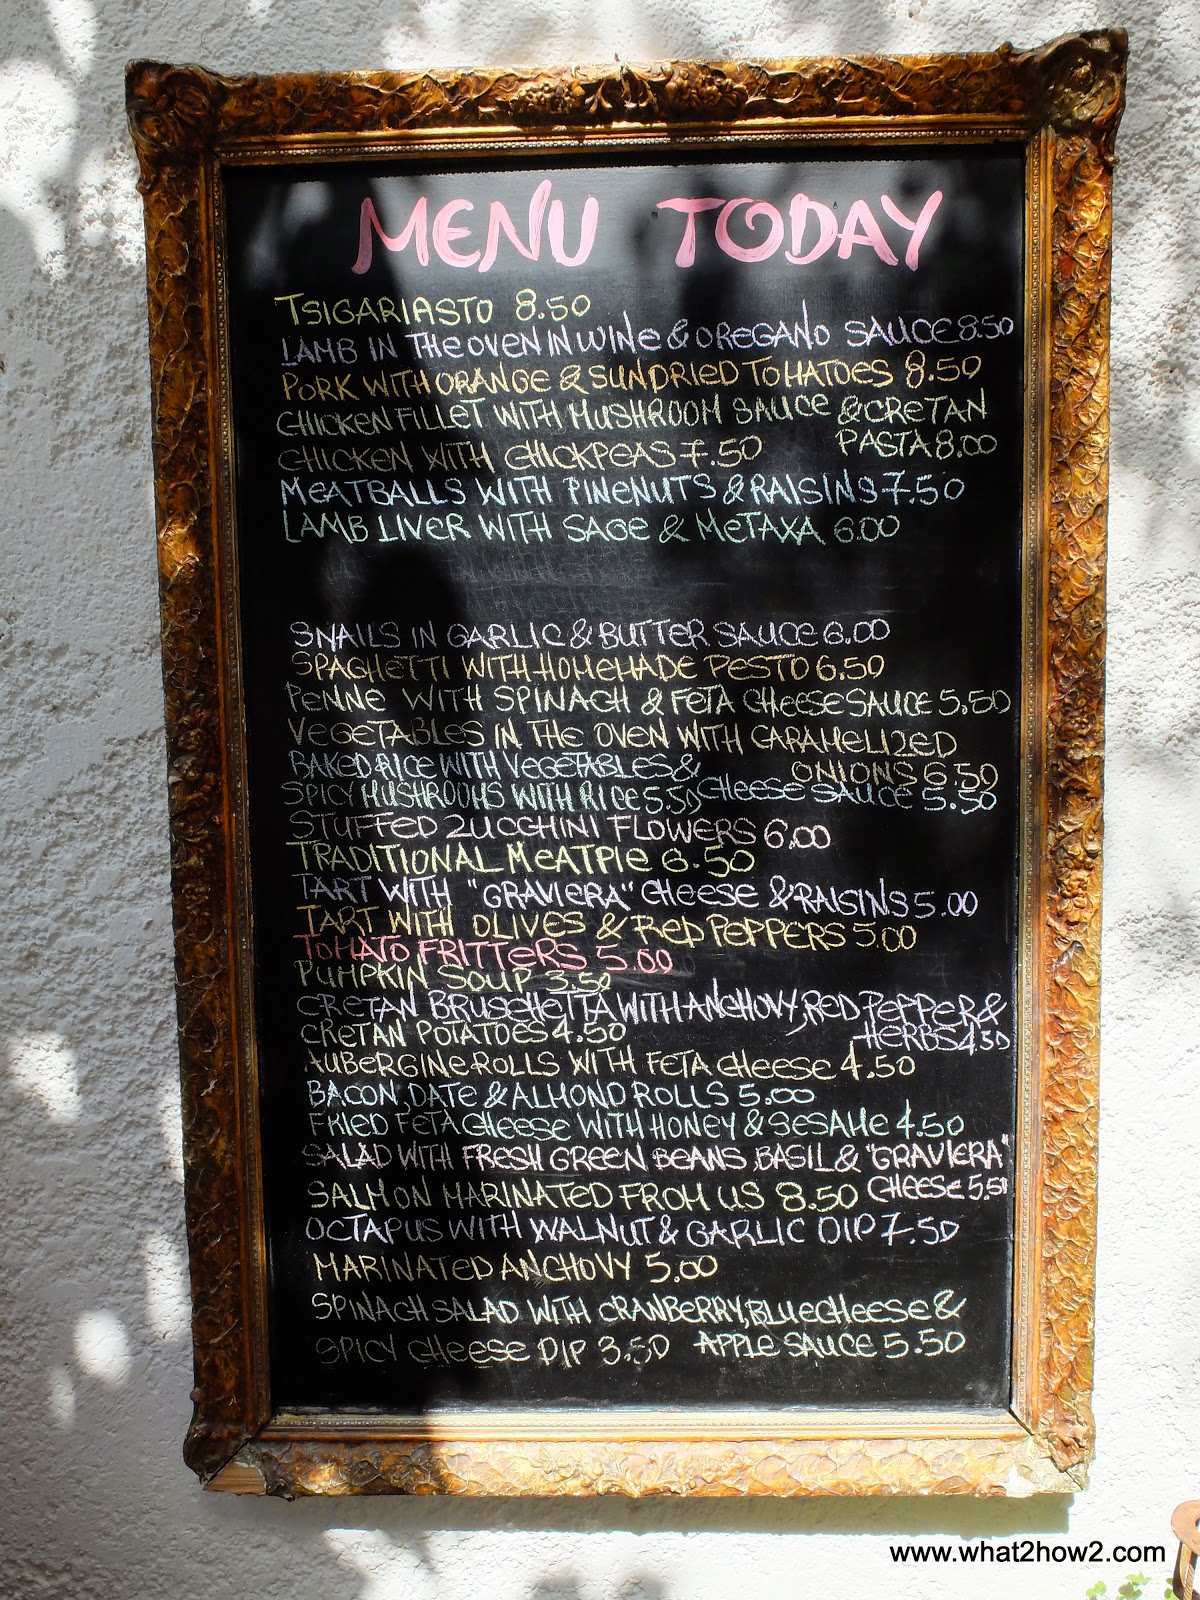 MENU TODAY
TSIGARIASTO 8.50
LAMB IN THE OVEN IN WINE & OREGANO SAUCE 8.50
PORK WITH ORANGE & SUNDRIED TOMATOES 8.50
CHICKEN FILLET WITH MUSHROOM SAUCE & CRETAN
PASTA 8.00
CHICKEN WITH CHICKPEAS 7.50
MEATBALLS WITH PINENUTS & RAISINS 7.50
LAMB LIVER WITH SAGE & METAXA 6.00
SNAILS IN GARLIC & BUTTER SAUCE 6.00
SPAGHETTI WITH HOMEMADE PESTO 6.50
PENNE WITH SPINACH & FETA CHEESE SAUCE 5.50
VEGETABLES IN THE OVEN WITH CARAMELIZED
ONIONS 6.50
BAKED RICE WITH VEGETABLES &
CHEESE SAUCE 5.50
SPICY MUSHROOMS WITH RICE 5.50
STUFFED ZUCCHINI FLOWERS 6.00
TRADITIONAL MEATPIE 6.50
TART WITH "GRAVIERA" CHEESE & RAISINS 5.00
TART WITH OLIVES & RED PEPPERS 5.00
TOMATO FRITTERS 5.00
PUMPKIN SOUP 3.50
CRETAN BRUSCHETTA WITH ANCHOVY, RED PEPPER &
HERBS 4.50
CRETAN POTATOES 4.50
AUBERGINE ROLLS WITH FETA CHEESE 4.50
BACON, DATE & ALMOND ROLLS 5.00
FRIED FETA CHEESE WITH HONEY & SESAME 4.50
SALAD WITH FRESH GREEN BEANS, BASIL & "GRAVIERA"
CHEESE 5.50
SALMON MARINATED FROM US 8.50
OCTAPUS WITH WALNUT & GARLIC DIP 7.50
MARINATED ANCHOVY 5.00
SPINACH SALAD WITH CRANBERRY, BLUE CHEESE &
APPLE SAUCE 5.50
SPICY CHEESE DIP 3.50
www.what2how2.com